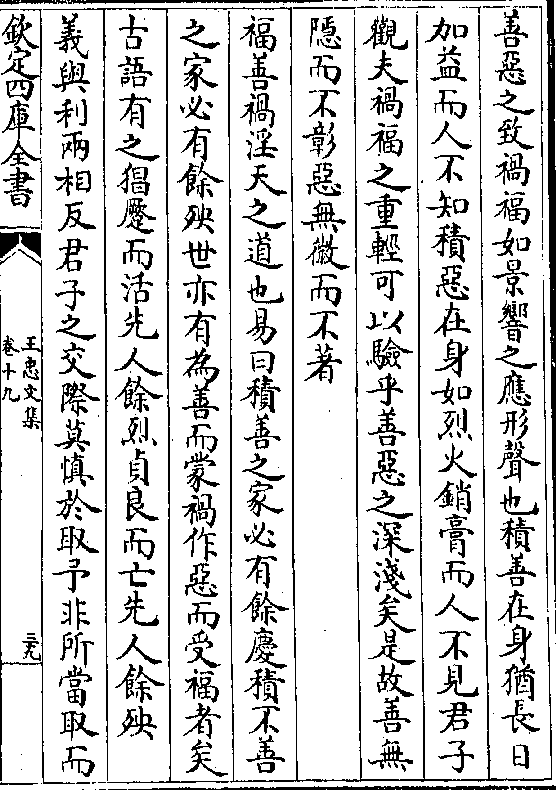 善惡之致禍福如景響之應形聲也積善在身猶長日
加益而人不知積惡在身如烈火銷膏而人不見君子
觀夫禍福之重輕可以驗乎善惡之深淺矣是故善無
隱而不彰惡無微而不著
福善禍淫天之道也易曰積善之家必有餘慶積不善
之家必有餘殃世亦有為善而蒙禍作惡而受福者矣
古語有之猖蹷而活先人餘烈貞良而亡先人餘殃
義與利兩相反君子之交際莫慎於取予非所當取而
欽定四庫全書
王忠文集
卷十九
三九